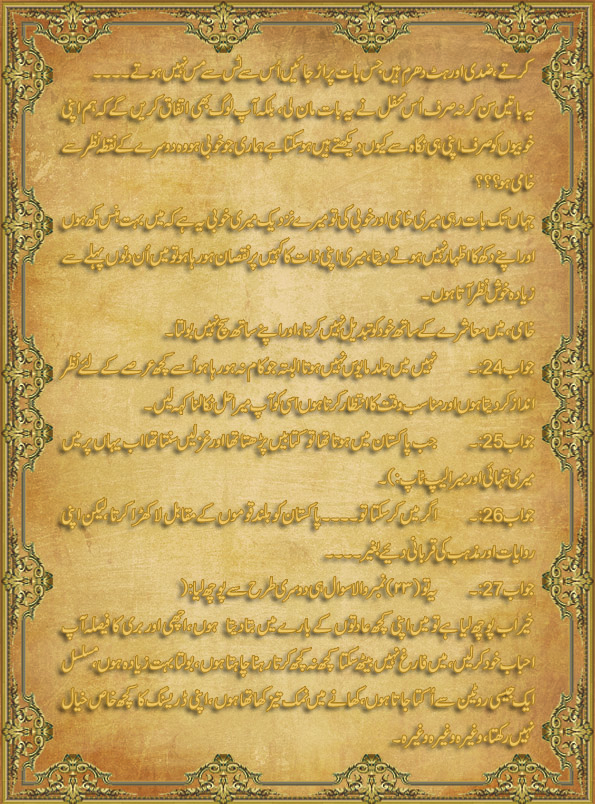 کرتے ،ضدی اور ہٹ دھرم ہیں جس بات پر اڑ جائیں اُس سے ٹَس سے مَس نہیں ہوتے ۔۔۔۔
یہ باتیں سن کر نہ صرف اُس محفل نے یہ بات مان لی، بلکہ آپ لوگ بھی اتفاق کریں گے کہ ہم اپنی
خوبیوں کو صرف اپنی ہی نگاہ سے کیوں دیکھتے ہیں ہوسکتا ہے ہماری جو خوبی ہو وہ دوسرے کے نقطہ نظر سے
خامی ہو؟؟؟
جہاں تک بات رہی میری خامی اور خوبی کی تو میرے نزدیک میری خوبی یہ ہے کہ میں بہت ہنس مکھ ہوں
اور اپنے دکھ کا اظہار نہیں ہونے دیتا، میری اپنی ذات کا کہیں پر نقصان ہو رہا ہو تو میں اُن دنوں پہلے سے
زیادہ خوش نظر آتا ہوں۔
خامی، میں معاشرے کے ساتھ خود کو تبدیل نہیں کرتا، اور اپنے ساتھ سچ نہیں بولتا۔
جواب24:۔ نہیں میں جلد مایوس نہیں ہوتا البتہ جو کام نہ ہو رہا ہو اُسے کچھ عرصے کے لئے نظر
انداز کر دیتا ہوں اور مناسب وقت کا انتظار کرتا ہوں اسی کو آپ میرا حل نکالنا کہہ لیں۔
جواب25:۔ جب پاکستان میں ہوتا تھا تو کتابیں پڑھتا تھا اور غزلیں سنتا تھا اب یہاں پر میں
میری تنہائی اور میرا لیپ ٹاپ :)۔
جواب26:۔ اگر میں کر سکتا تو۔۔۔۔۔ پاکستان کو بلند قوموں کے مقابل لا کھڑا کرتا ،لیکن اپنی
روایات اور مذہب کی قربانی دیئے بغیر۔۔۔۔۔
جواب27:۔ یہ تو (۲۳) نمبر والا سوال ہی دوسری طرح سے پوچھ لیا :(
خیر اب پوچھ لیا ہے تو میں اپنی کچھ عادتوں کے بارے میں بتا دیتا ہوں، اچھی اور بری کا فیصلہ آپ
احباب خود کر لیں، میں فارغ نہیں بیٹھ سکتا کچھ نہ کچھ کرتا رہنا چاہتا ہوں، بولتا بہت زیادہ ہوں، مسلسل
ایک جیسی روٹین سے اُکتا جاتا ہوں، کھانے میں نمک تیز کھاتا ہوں، اپنی ڈریسنگ کا کچھ خاص خیال
نہیں رکھتا، وغیرہ وغیرہ وغیرہ۔